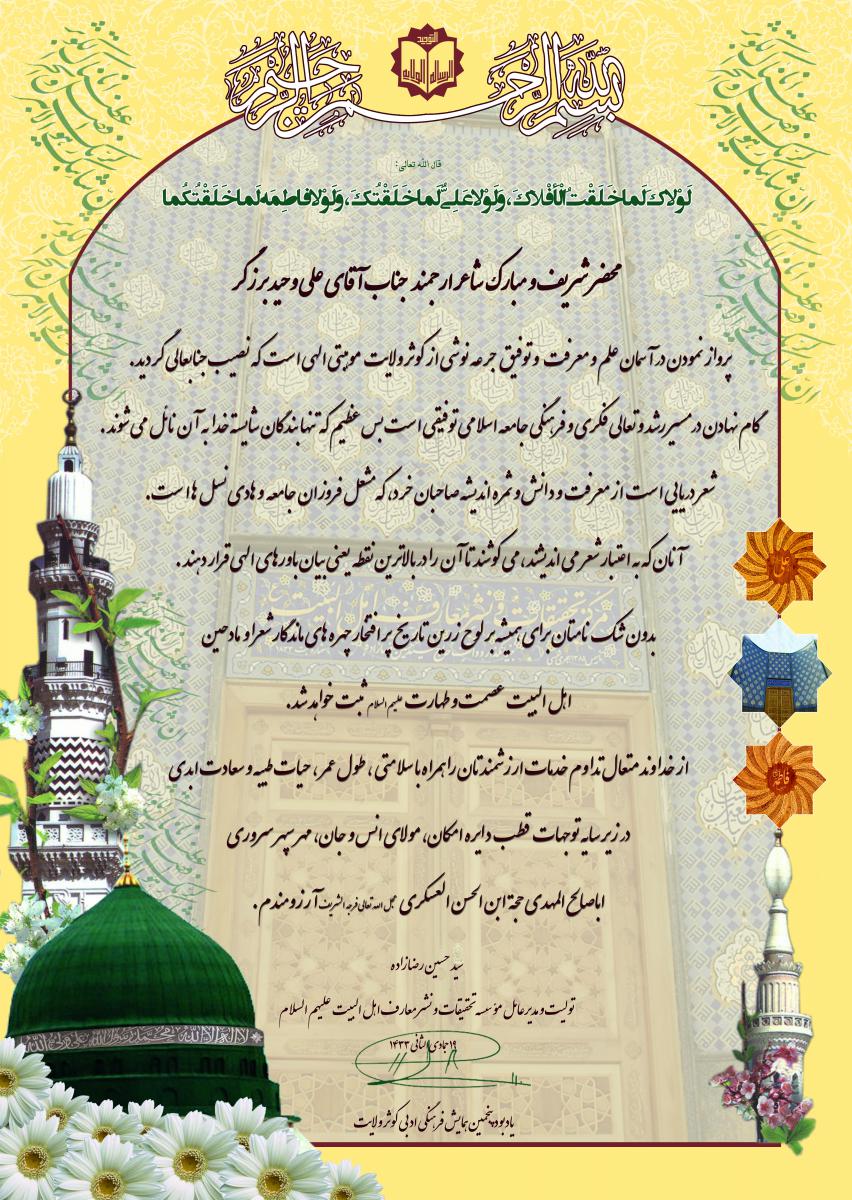 بسم الله الرحمن الرحیم
التوحید
الرساله الولایه
قال الله تعالی:
لَوْلاکَ لَما خَلَقْتُ الْأَفْلاکَ، وَلَوْلا عَلِیٌّ لَما خَلَقْتُکَ، وَلَوْلا فاطِمَه لَما خَلَقْتُکُما
محضر شریف و مبارک شاعر ارجمند جناب آقای علی وحید برزگر
پرواز نمودن در آسمان علم و معرفت و توفیق جرعه نوشی از کوثر ولایت موهبتی الهی است که نصیب جنابعالی گردید.
گام نهادن در مسیر رشد و تعالی فکری و فرهنگی جامعه اسلامی توفیقی است بس عظیم که تنها بندگان شایسته خدا به آن نائل می شوند.
شعر دریایی است از معرفت و دانش و ثمره اندیشه صاحبان خرد، که مشعل فروزان جامعه و هادی نسل ها است.
آنان که به اعتبار شعر می اندیشند، می کوشند تا آن را در بالاترین نقطه یعنی بیان باورهای الهی قرار دهند.
بدون شک نامتان برای همیشه بر لوح زرین تاریخ پر افتخار چهره های ماندگار شعرا و مادحین
اهل البیت عصمت و طهارت علیهم السلام ثبت خواهد شد.
از خداوند متعال تداوم خدمات ارزشمندتان را همراه با سلامتی، طول عمر، حیات طیبه و سعادت ابدی
در زیر سایه توجهات قطب دایره امکان، مولای انس و جان، مهر سپهر سروری
اباصالح المهدی حجة ابن الحسن العسکری عجل الله تعالی فرجه الشریف آرزومندم.
سید حسین رضازاده
تولیت و مدیرعامل مؤسسه تحقیقات و نشر معارف اهل البیت علیهم السلام
۱۹ جمادی الثانی ۱۴۳۳
یادبود پنجمین همایش فرهنگی ادبی کوثر ولایت
علی
فاطمه